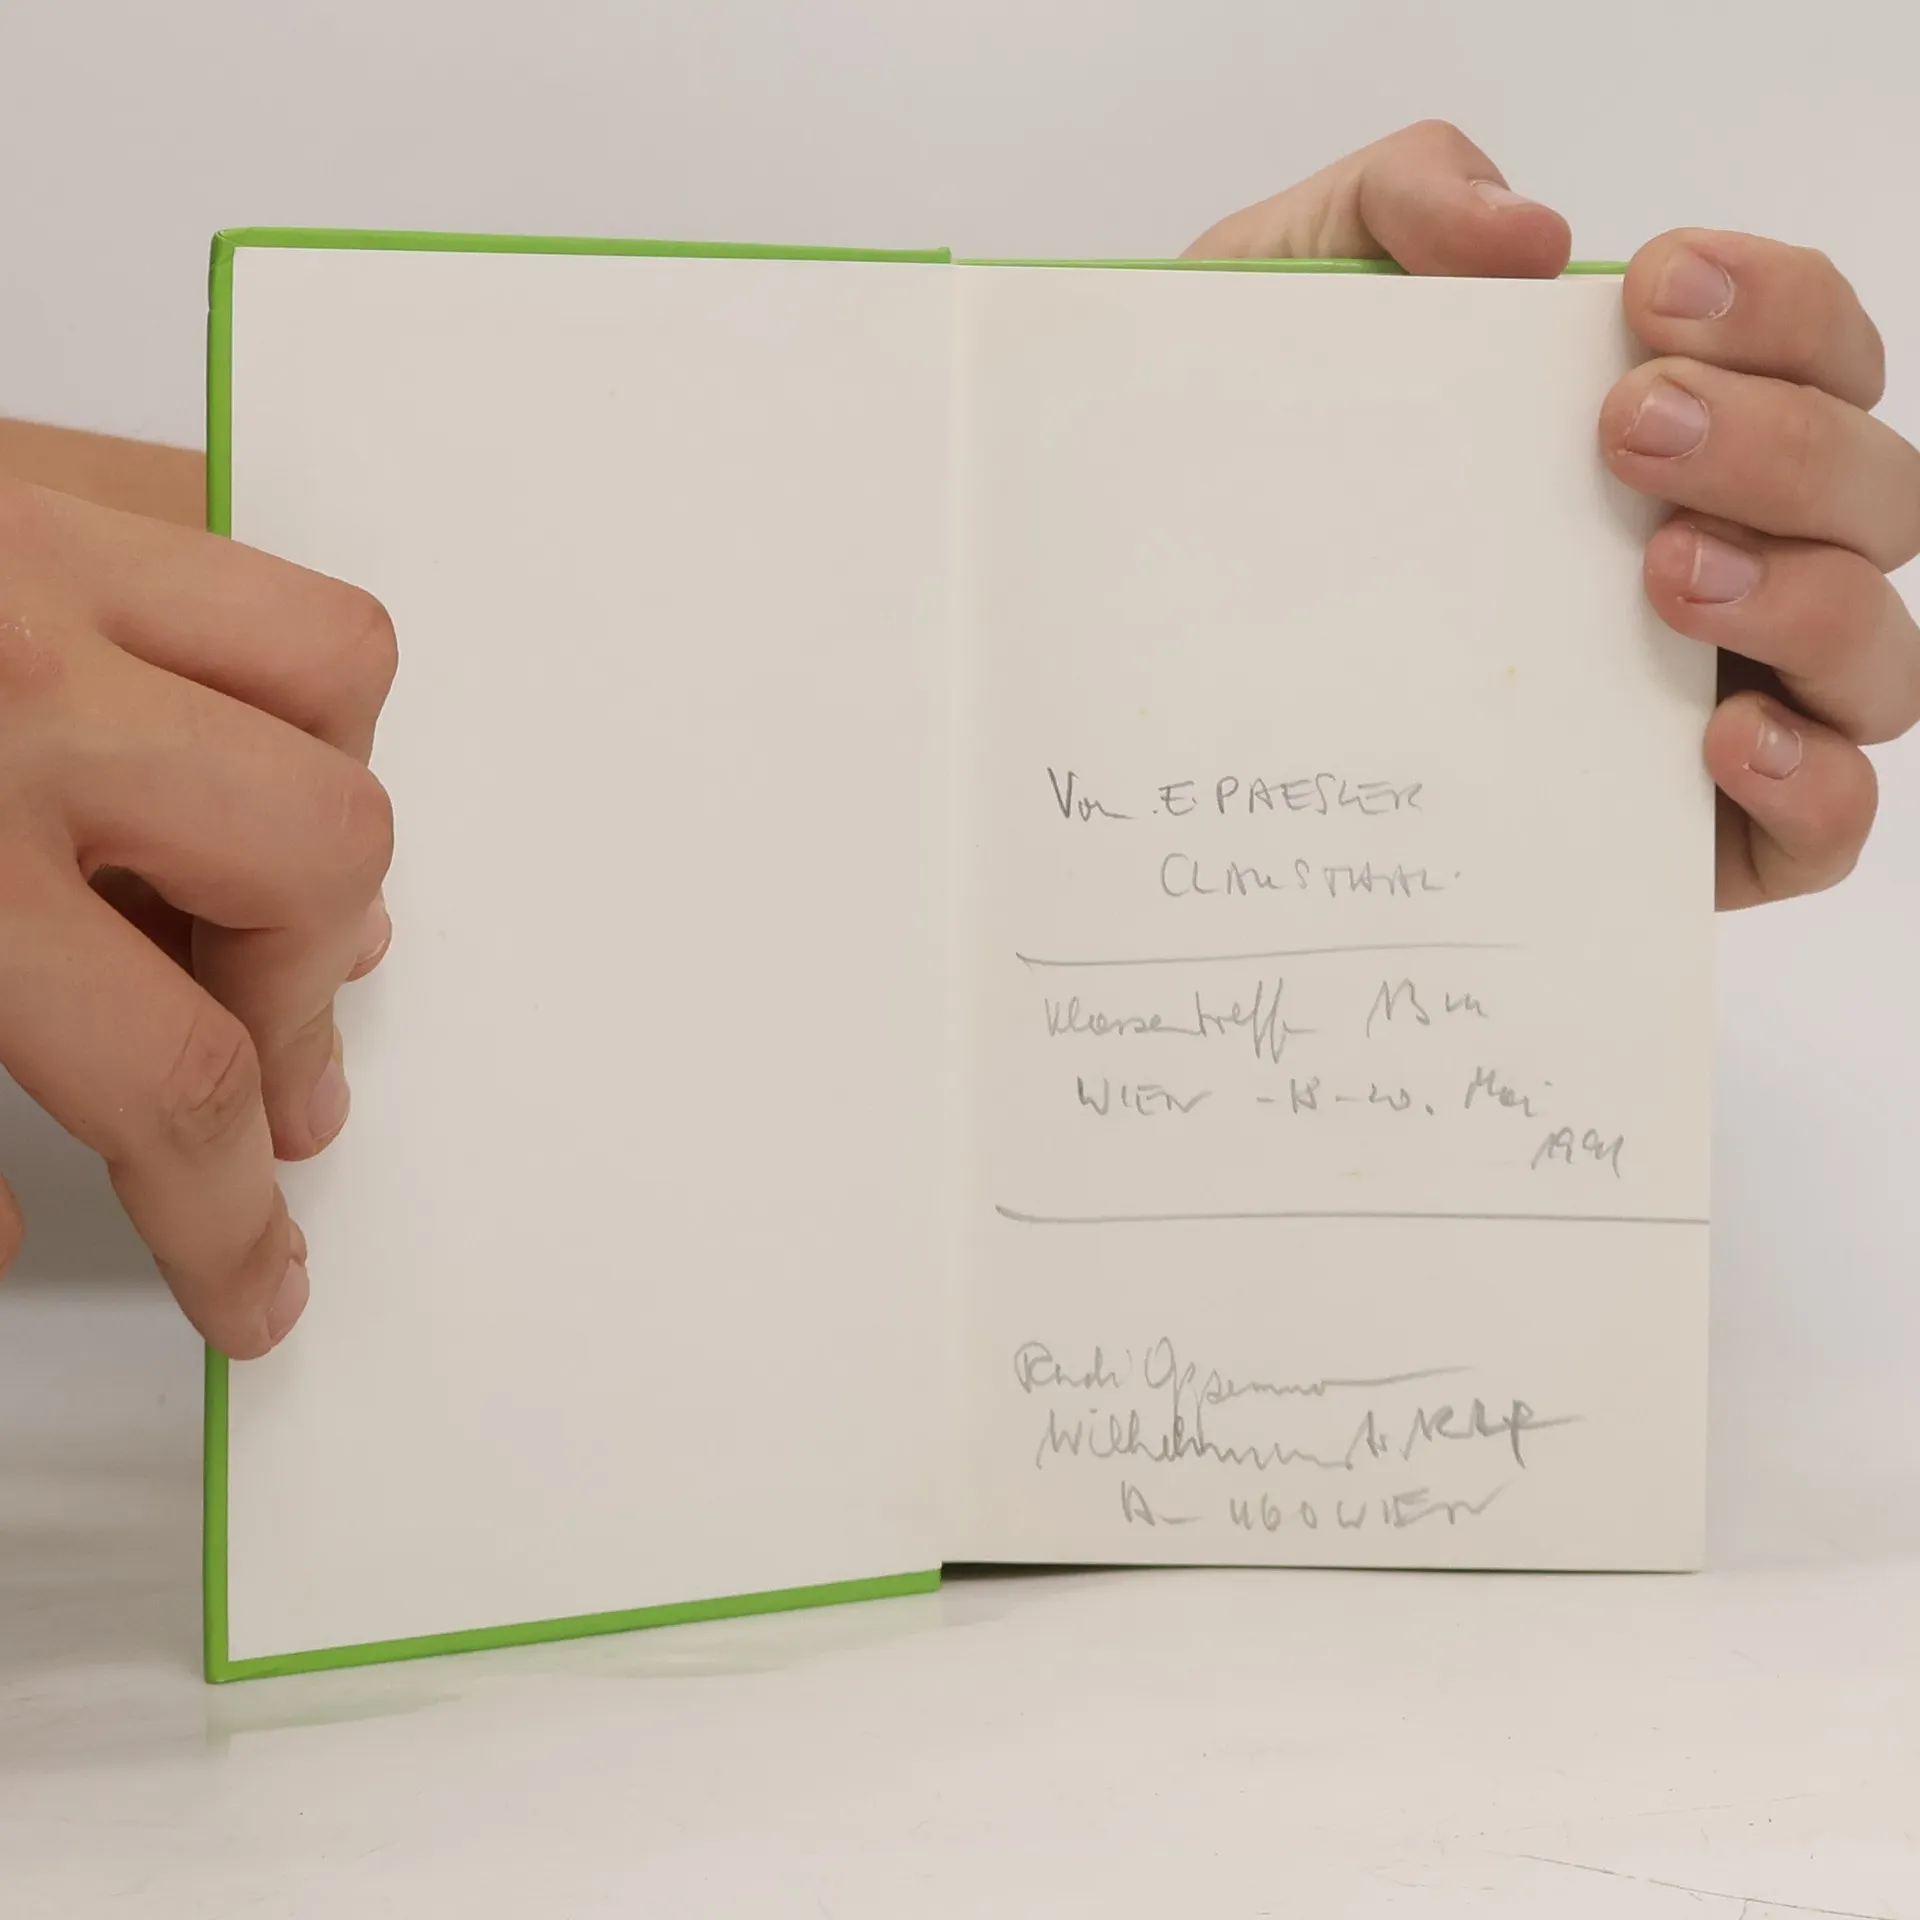 Von E. PAESLER
CLAUSTHAL.
Klassentreffen
WIEN -18-20. Mai
1991
Rudi Oppermann
A- 1160 WIEN